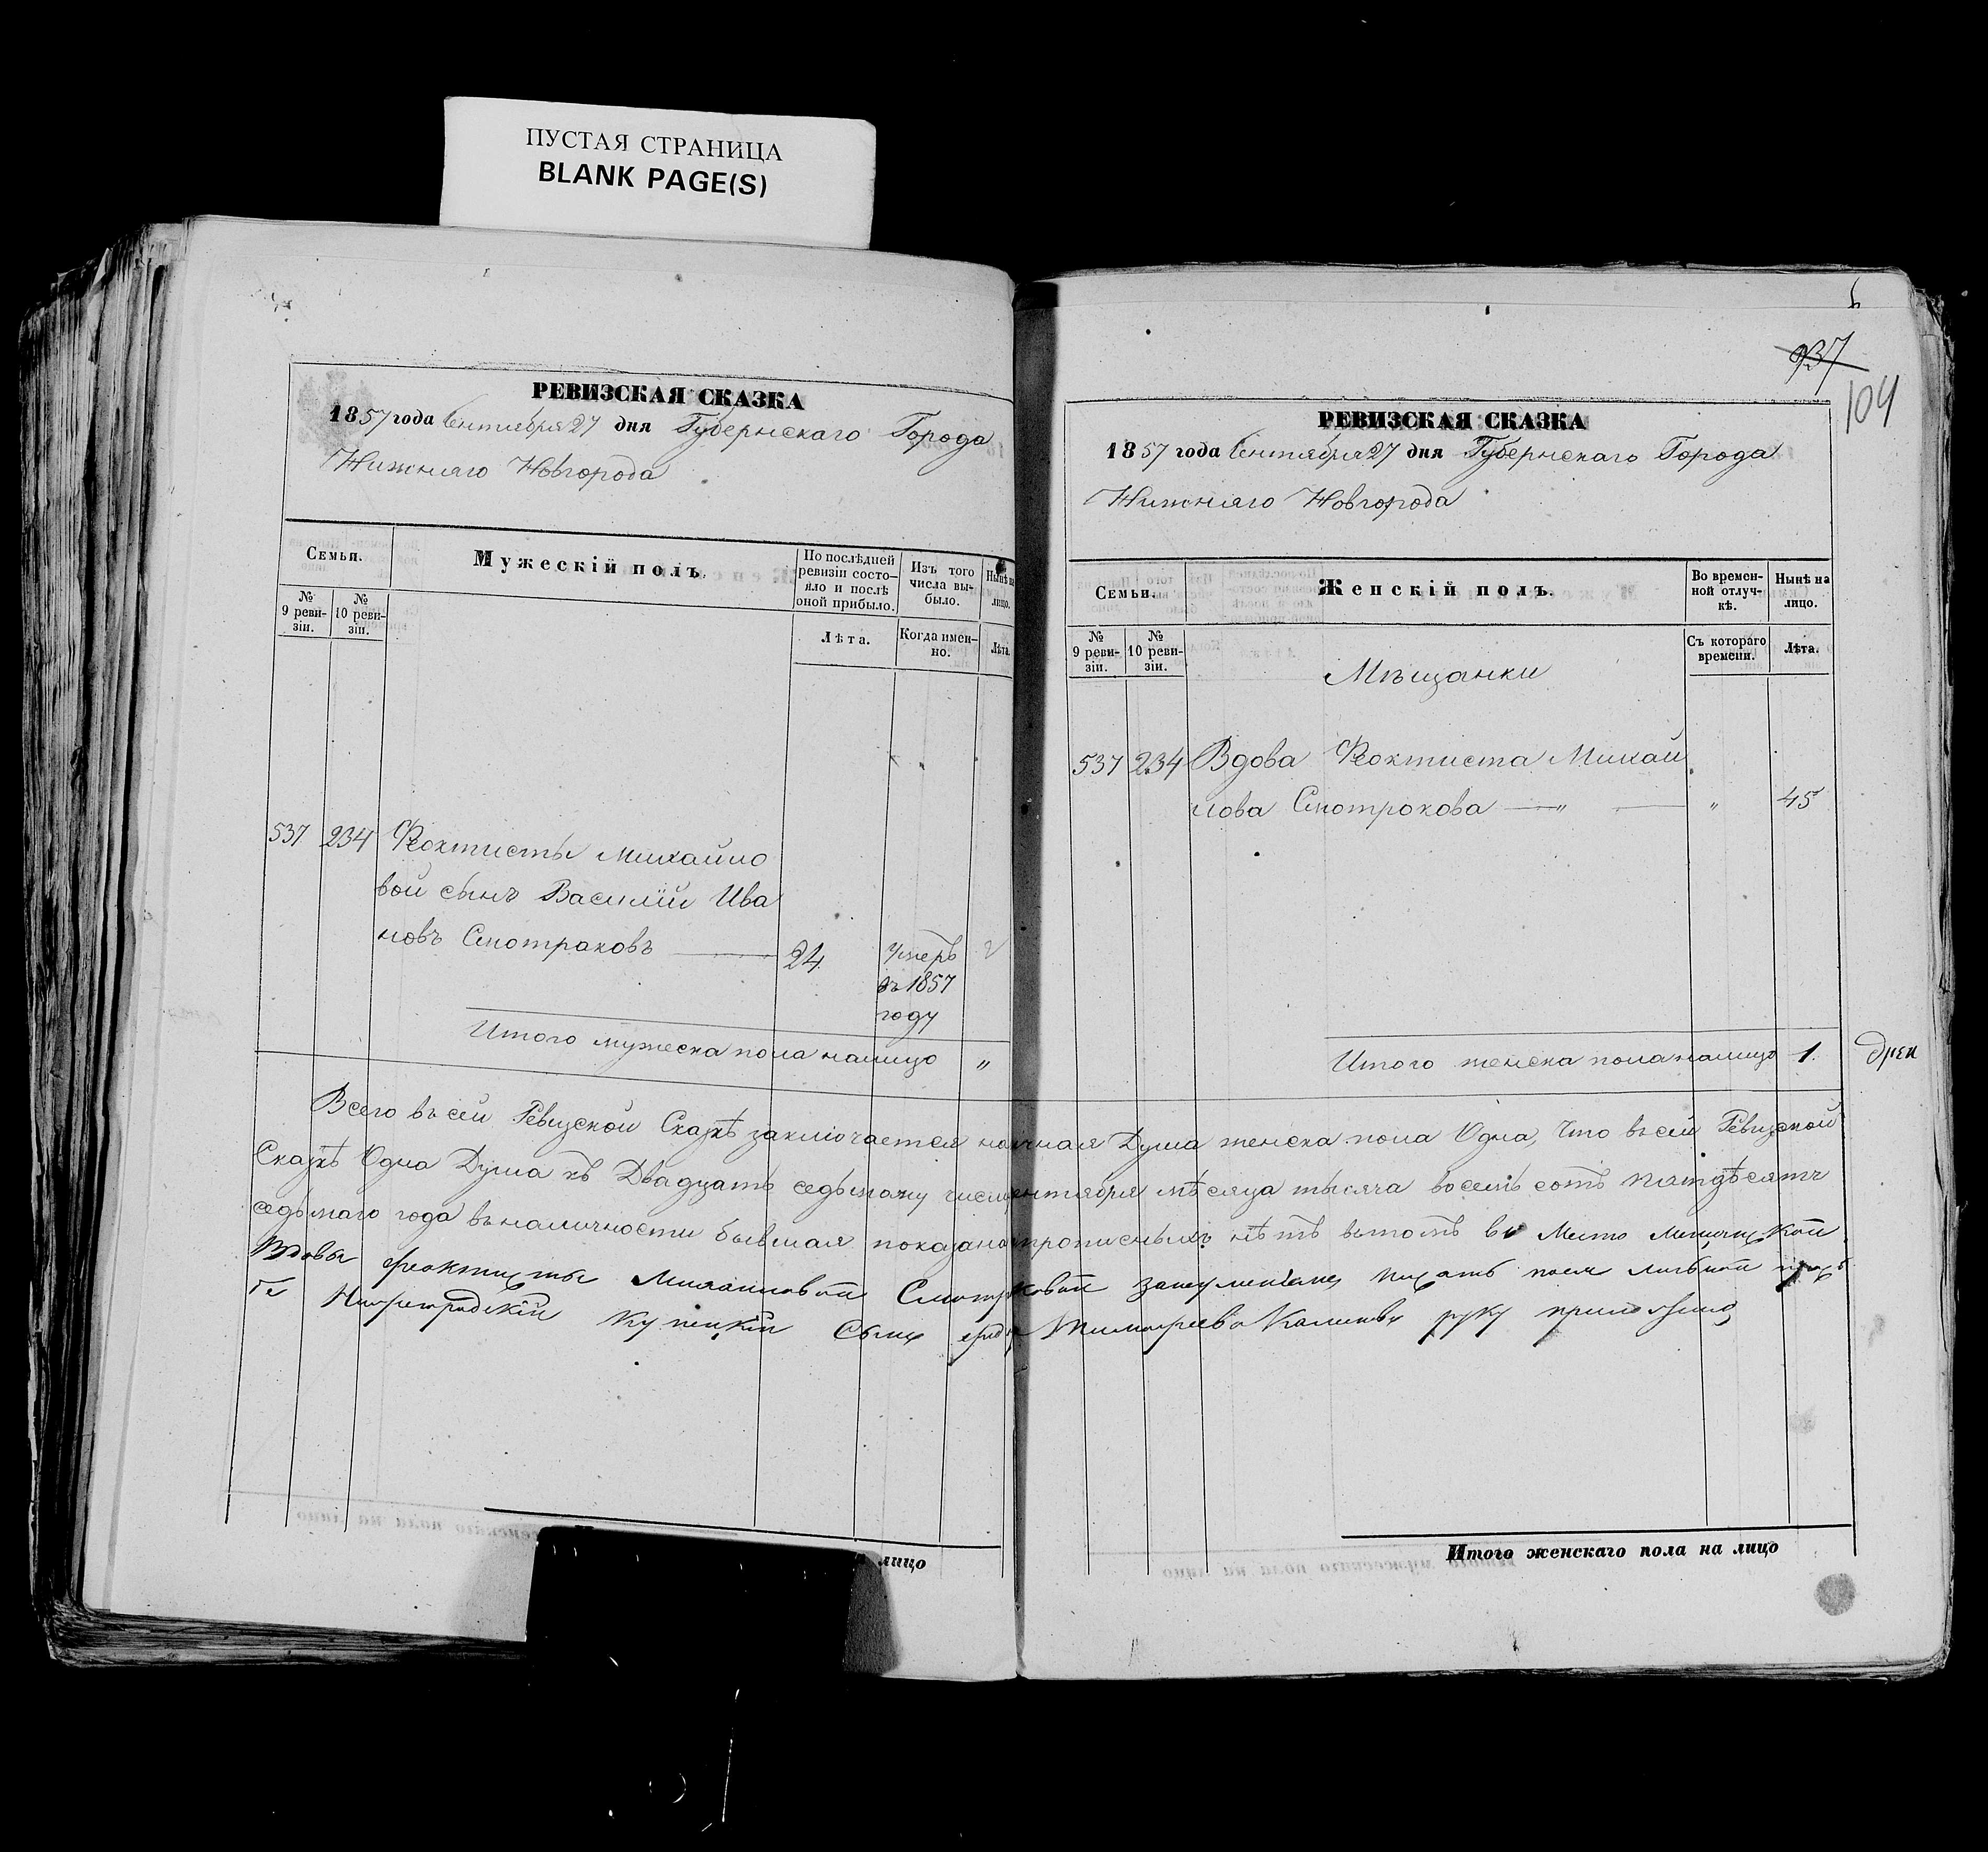 ПУСТАЯ СТРАНИЦА
BLANK PAGE(S)
РЕВИЗСКАЯ СКАЗКА
1857 года Сентября 27 дня Губернскаго Города
Нижняго Новгорода
Семьи.
Мужескій полъ.
По послѣдней ревизіи состояло и послѣ оной прибыло.
Изъ того числа выбыло.
Нынѣ на лицо.
№ 9 ревизіи.
№ 10 ревизіи.
Лѣта.
Когда именно.
Лѣта.
537 234 Феоктисты Михайло
вой сынъ Василій Ива
новъ Смотраковъ 24 Умеръ
въ 1857
году
Итого мужеска пола налицо "
937
104
РЕВИЗСКАЯ СКАЗКА
1857 года Сентября 27 дня Губернскаго Города
Нижняго Новгорода
Семьи.
Женскій полъ.
Во временной отлучкѣ.
Нынѣ на лицо.
№ 9 ревизіи.
№ 10 ревизіи.
Съ котораго времени.
Лѣта.
Мѣщанки
537 234 Вдова Феоктиста Михай
лова Смотрокова " " 45
Итого женска пола налицо 1
Всего въ сей Ревизской Сказкѣ заключается наличная Душа женска пола Одна, Что въ сей Ревизской
Сказкѣ Одна Душа къ Двадцать седьмому числу Сентября мѣсяца тысяча восемь сотъ пятдѣсятъ
седьмаго года въ наличности бывшая показана и прописныхъ нѣтъ въ томъ в Место Мещанской
Вдовы феоктисты Михаиловой Смотраковой
Купецкій Сынъ руку приложилъ
лицо
Итого женскаго пола на лицо